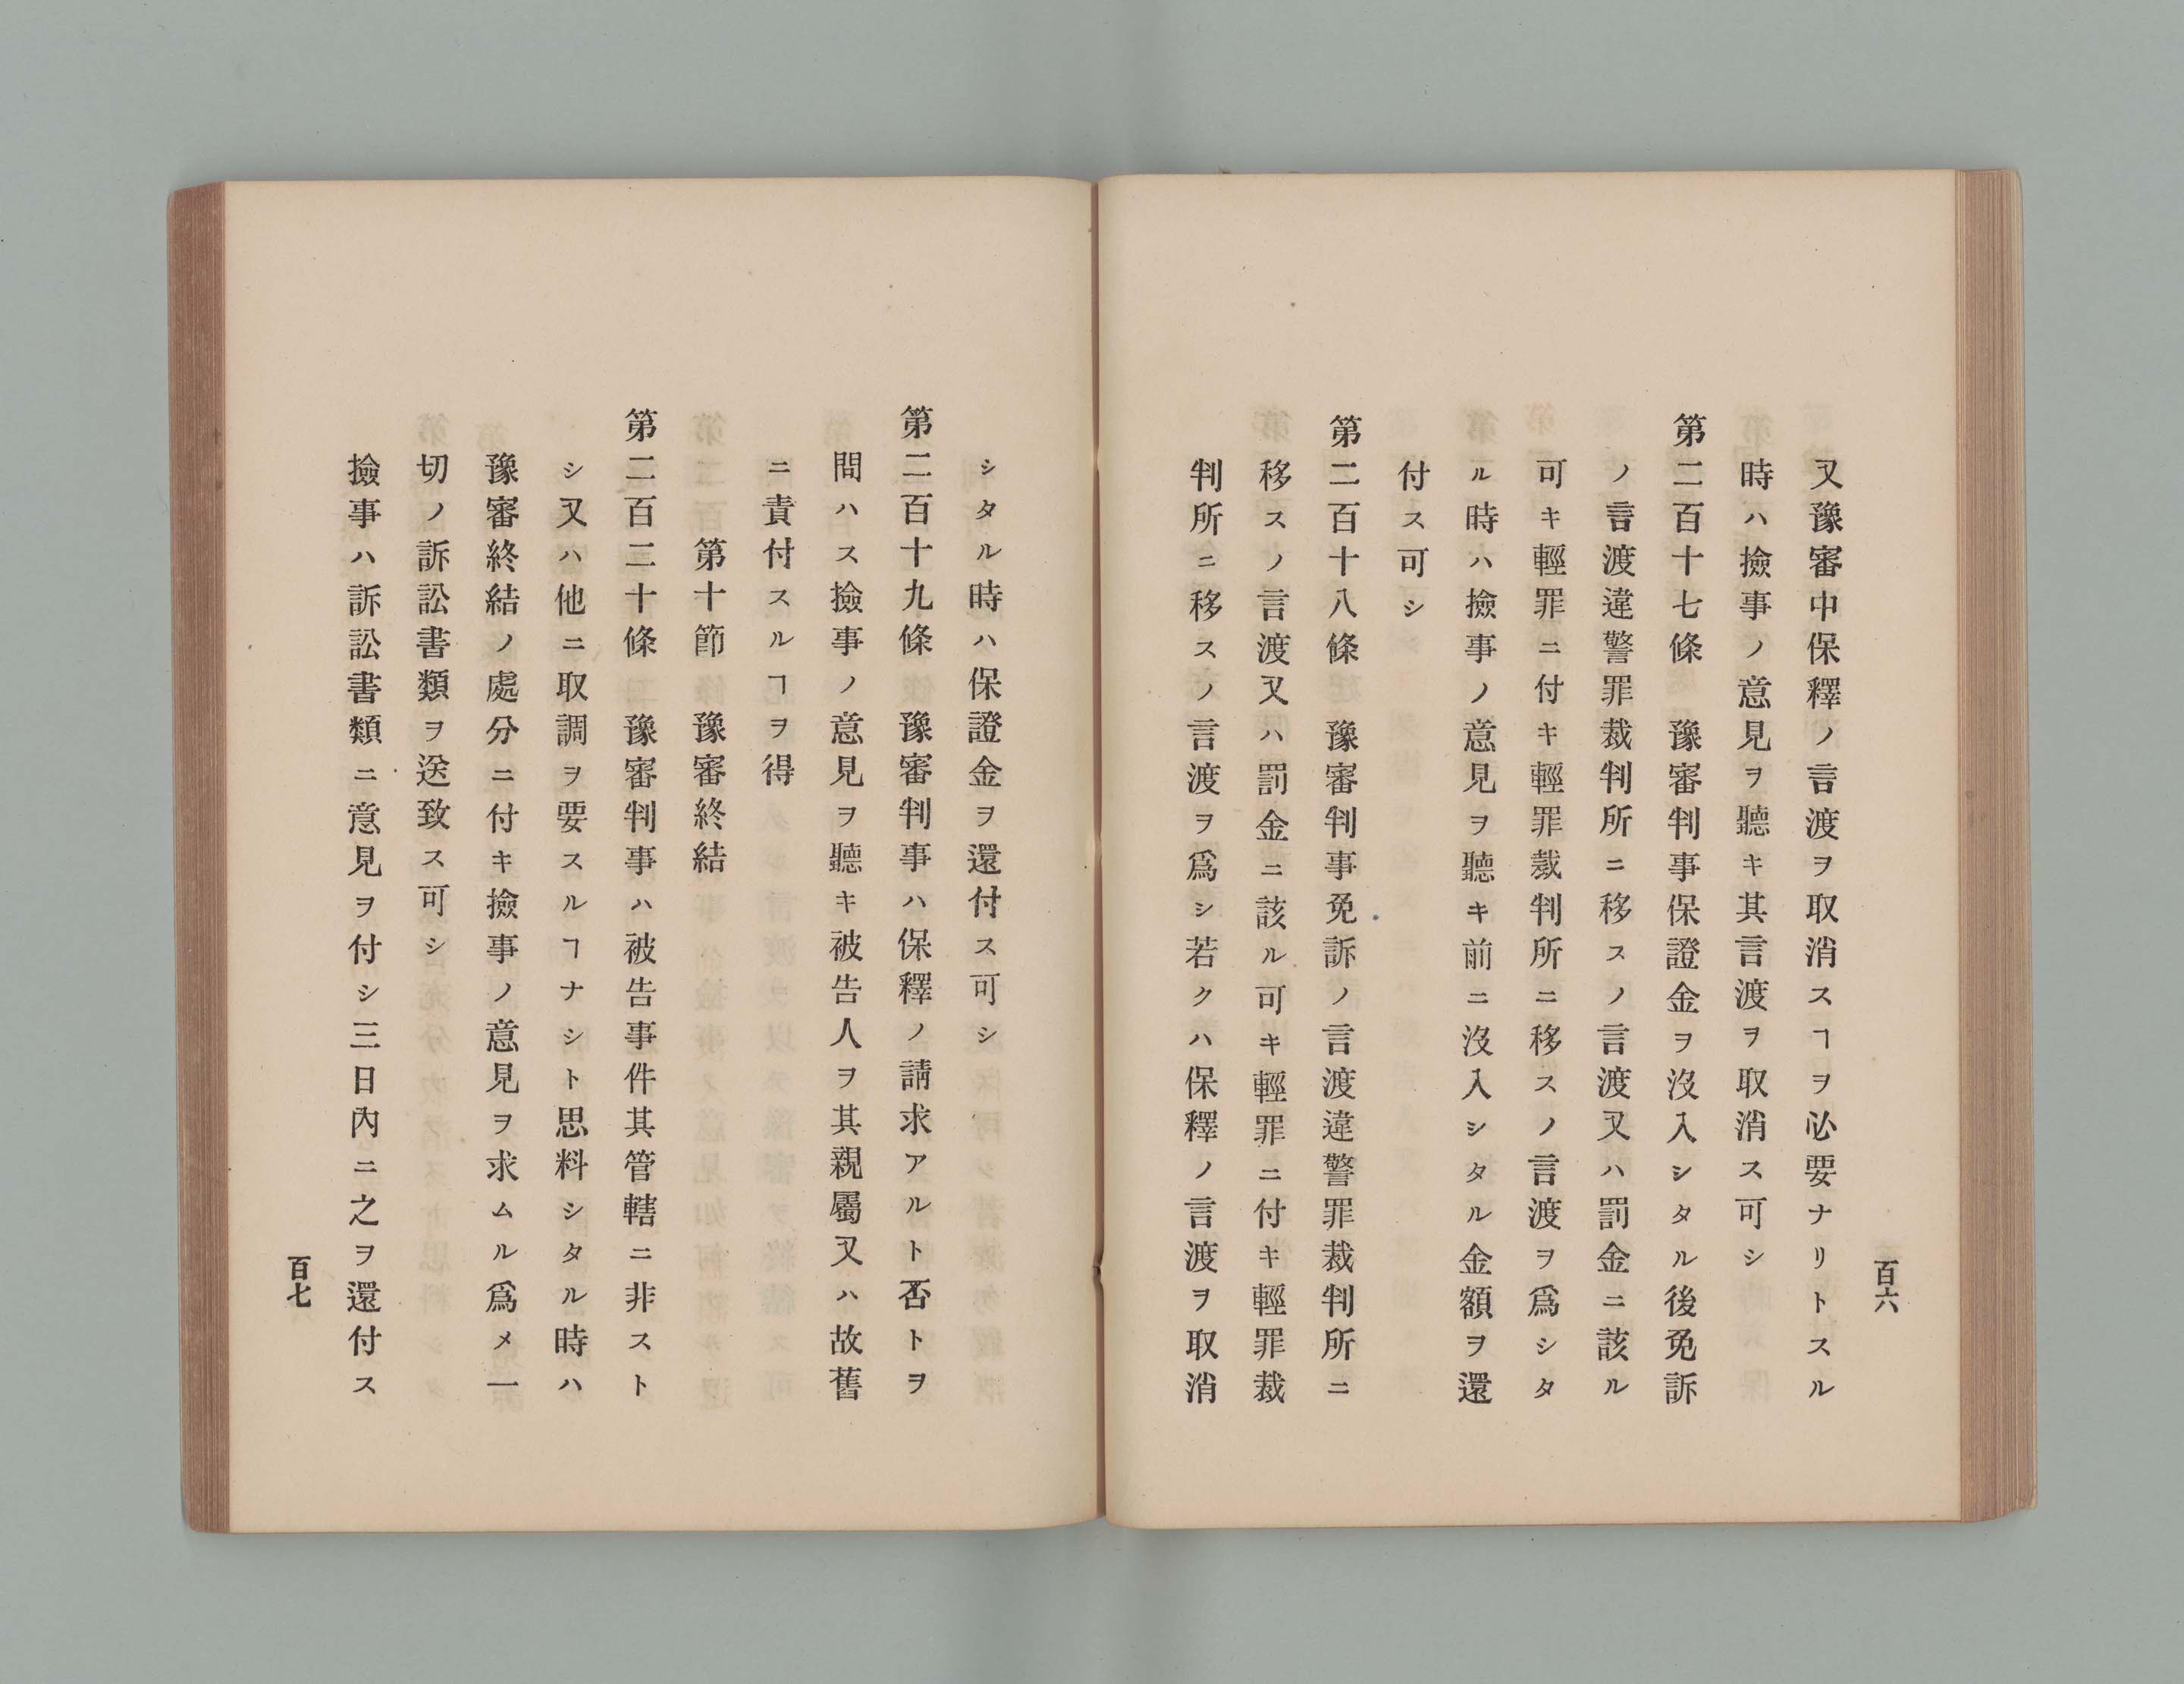 又豫審中保釋ノ言渡ヲ取消スヿヲ必要ナリトスル
時ハ撿事ノ意見ヲ聽キ其言渡ヲ取消ス可シ
第二百十七條　豫審判事保證金ヲ沒入シタル後免訴
ノ言渡違警罪裁判所ニ移スノ言渡又ハ罰金ニ該ル
可キ輕罪ニ付キ輕罪裁判所ニ移スノ言渡ヲ爲シタ
ル時ハ撿事ノ意見ヲ聽キ前ニ沒入シタル金額ヲ還
付ス可シ
第二百十八條　豫審判事免訴ノ言渡違警罪裁判所ニ
移スノ言渡又ハ罰金ニ該ル可キ輕罪ニ付キ輕罪裁
判所ニ移スノ言渡ヲ爲シ若クハ保釋ノ言渡ヲ取消
百六
シタル時ハ保證金ヲ還付ス可シ
第二百十九條　豫審判事ハ保釋ノ請求アルト否トヲ
問ハス撿事ノ意見ヲ聽キ被告人ヲ其親屬又ハ故舊
ニ責付スルヿヲ得
第十節　豫審終結
第二百二十條　豫審判事ハ被告事件其管轄ニ非スト
シ又ハ他ニ取調ヲ要スルヿナシト思料シタル時ハ
豫審終結ノ處分ニ付キ撿事ノ意見ヲ求ムル爲メ一
切ノ訴訟書類ヲ送致ス可シ
撿事ハ訴訟書類ニ意見ヲ付シ三日內ニ之ヲ還付ス
百七